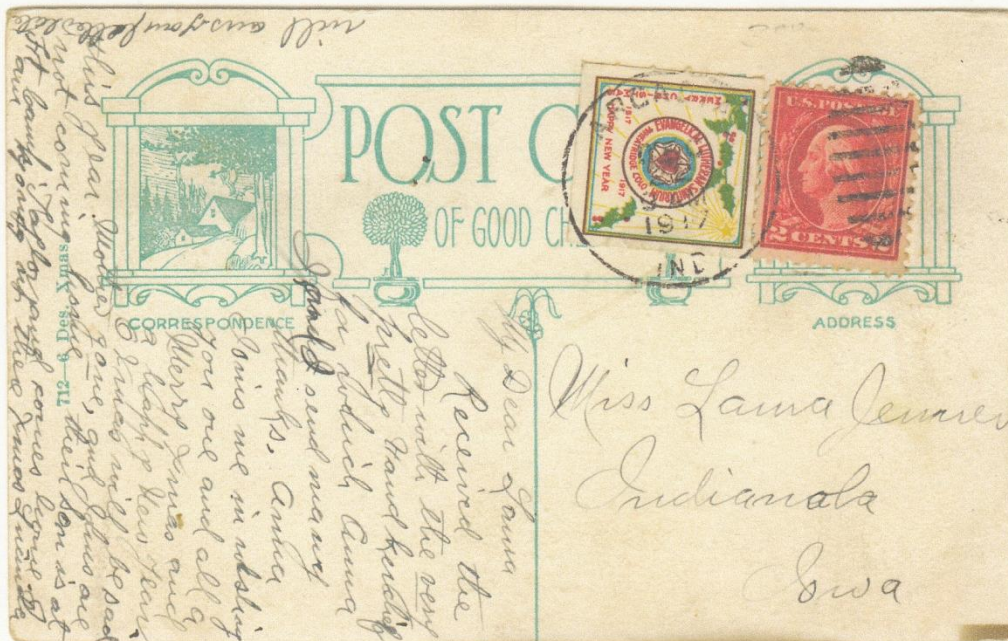 POST C
OF GOOD CH
CORRESPONDENCE
ADDRESS
712—6 Des. Xmas
MERRY
HAPPY NEW YEAR
1917
1917
EVANGELICAL LUTHERAN SANITARIUM
19 17
IND
U.S. POSTAGE
2 CENTS 2
Miss Laura
Indianola
Iowa
My Dear Laura
Received the
letter with the very
pretty handkerchief
for which Anna
and I send many
thanks, Anna
joins me in wishing
you one and all a
Merry Xmas and
a Happy New Year
Xmas will be sad
this year. Mother gone, and Johns are
not coming home, their son is at
Camp Taylor, and comes home
and
will ans your letter